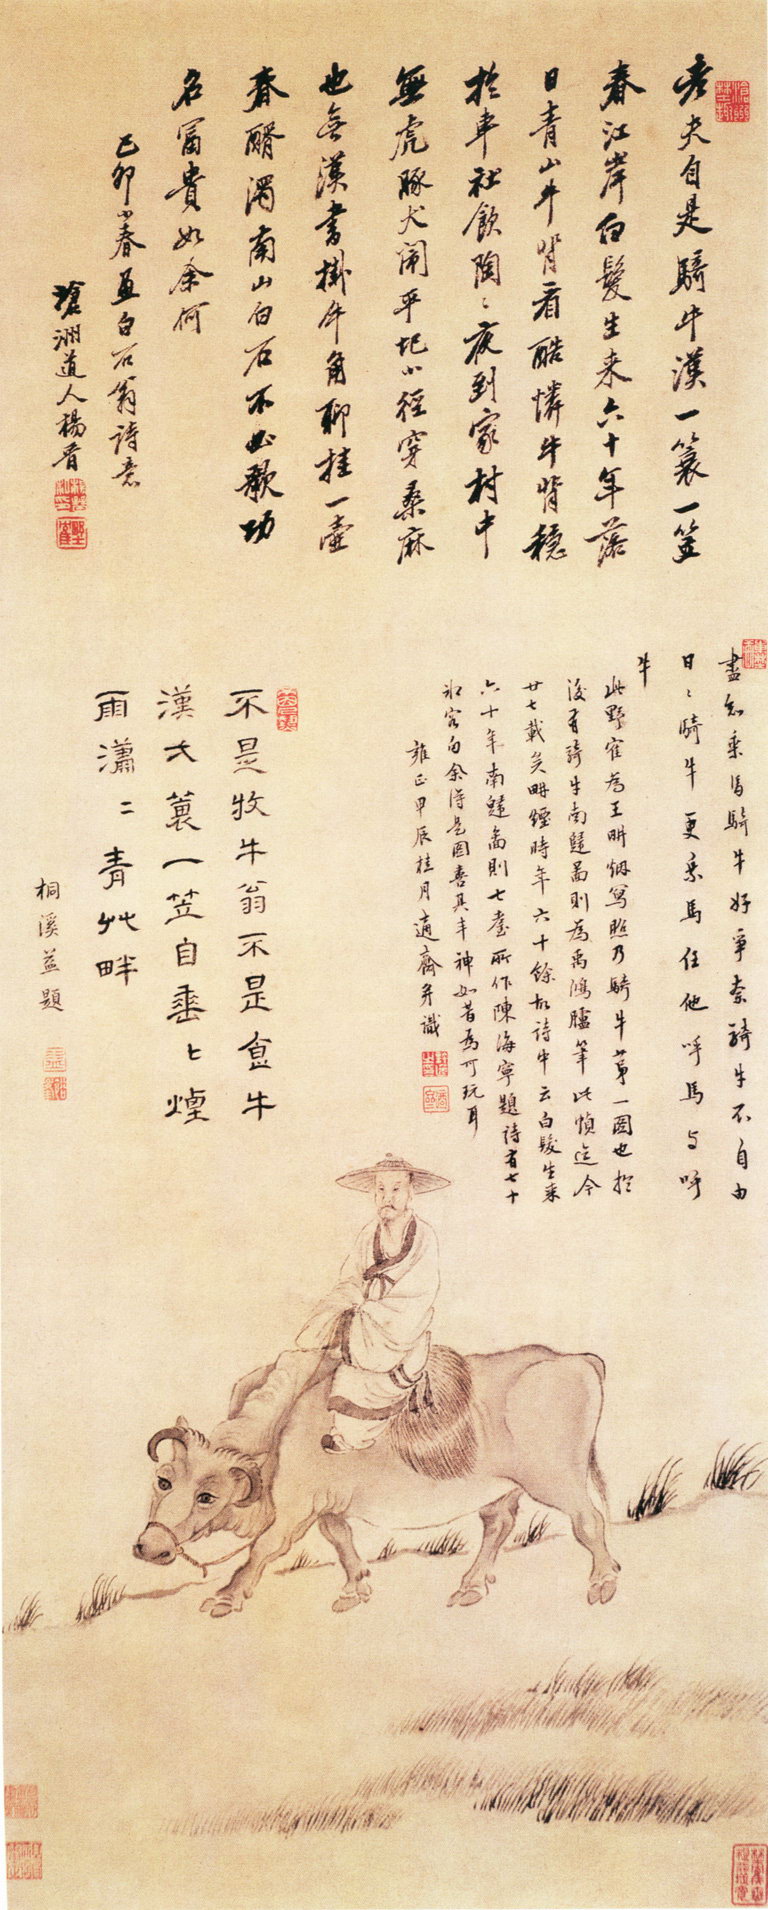 老夫自是騎牛漢一簑一笠
春江岸白髮生來六十年落
日青山牛背看酷憐牛背穩
於車社飲陶〻夜到家村中
無虎豚犬鬧平圯小徑穿桑麻
也無漢書掛牛角聊挂一壺
春醑濁南山白石不必歌功
名富貴如余何
己卯小春畫白石翁詩意
滄洲道人楊晉
盡知乘馬騎牛好爭柰騎牛不自由
日〻騎牛更乘馬任他呼馬與呼
牛
此野崔為王畊烟寫照乃騎牛第一圖也於
後有騎牛南還圖則為禹鴻臚筆此幀迄今
廿七載矣畊煙時年六十餘故詩中云白髮生來
六十年南還圖則七耋所作陳海寧題詩有七十
老客句余得是圖喜其丰神如昔為可玩耳
雍正甲辰桂月適齋并識
不是牧牛翁不是食牛
漢大蓑一笠自垂〻煙
雨瀟〻青艸畔
桐溪益題